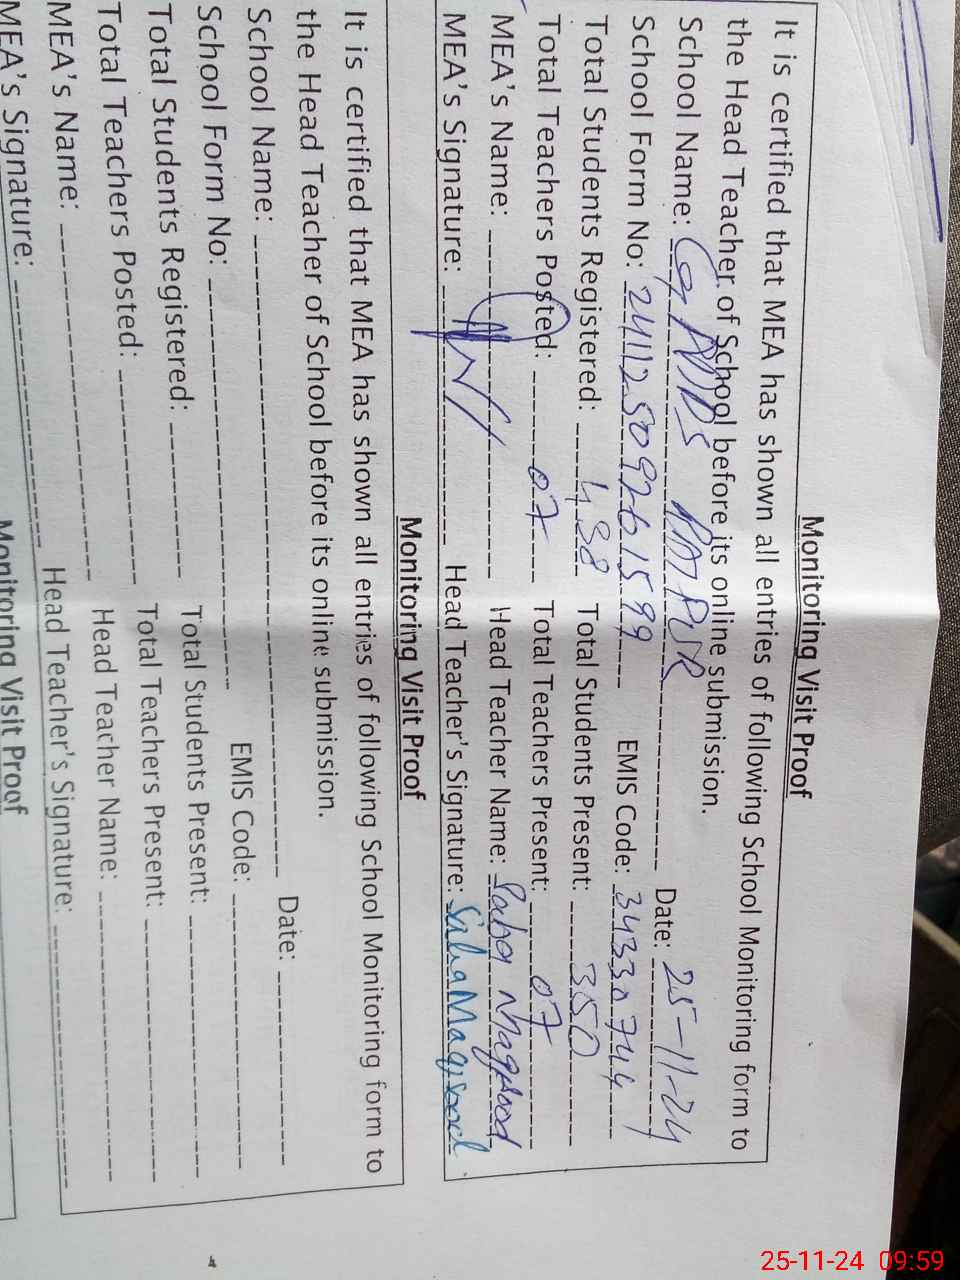 Monitoring Visit Proof
It is certified that MEA has shown all entries of following School Monitoring form to
the Head Teacher of School before its online submission.
School Name: Date: 25-11-24
School Form No: 24112509261599 EMIS Code: 34330744
Total Students Registered: 438 Total Students Present: 350
Total Teachers Posted: 07 Total Teachers Present: 07
MEA's Name: Head Teacher Name: Saba Maqsood
MEA's Signature: Head Teacher's Signature: Saba Maqsood
Monitoring Visit Proof
It is certified that MEA has shown all entries of following School Monitoring form to
the Head Teacher of School before its online submission.
School Name: Date:
School Form No: EMIS Code:
Total Students Registered: Total Students Present:
Total Teachers Posted: Total Teachers Present:
MEA's Name: Head Teacher Name:
MEA's Signature: Head Teacher's Signature:
Monitoring Visit Proof
25-11-24 09:59